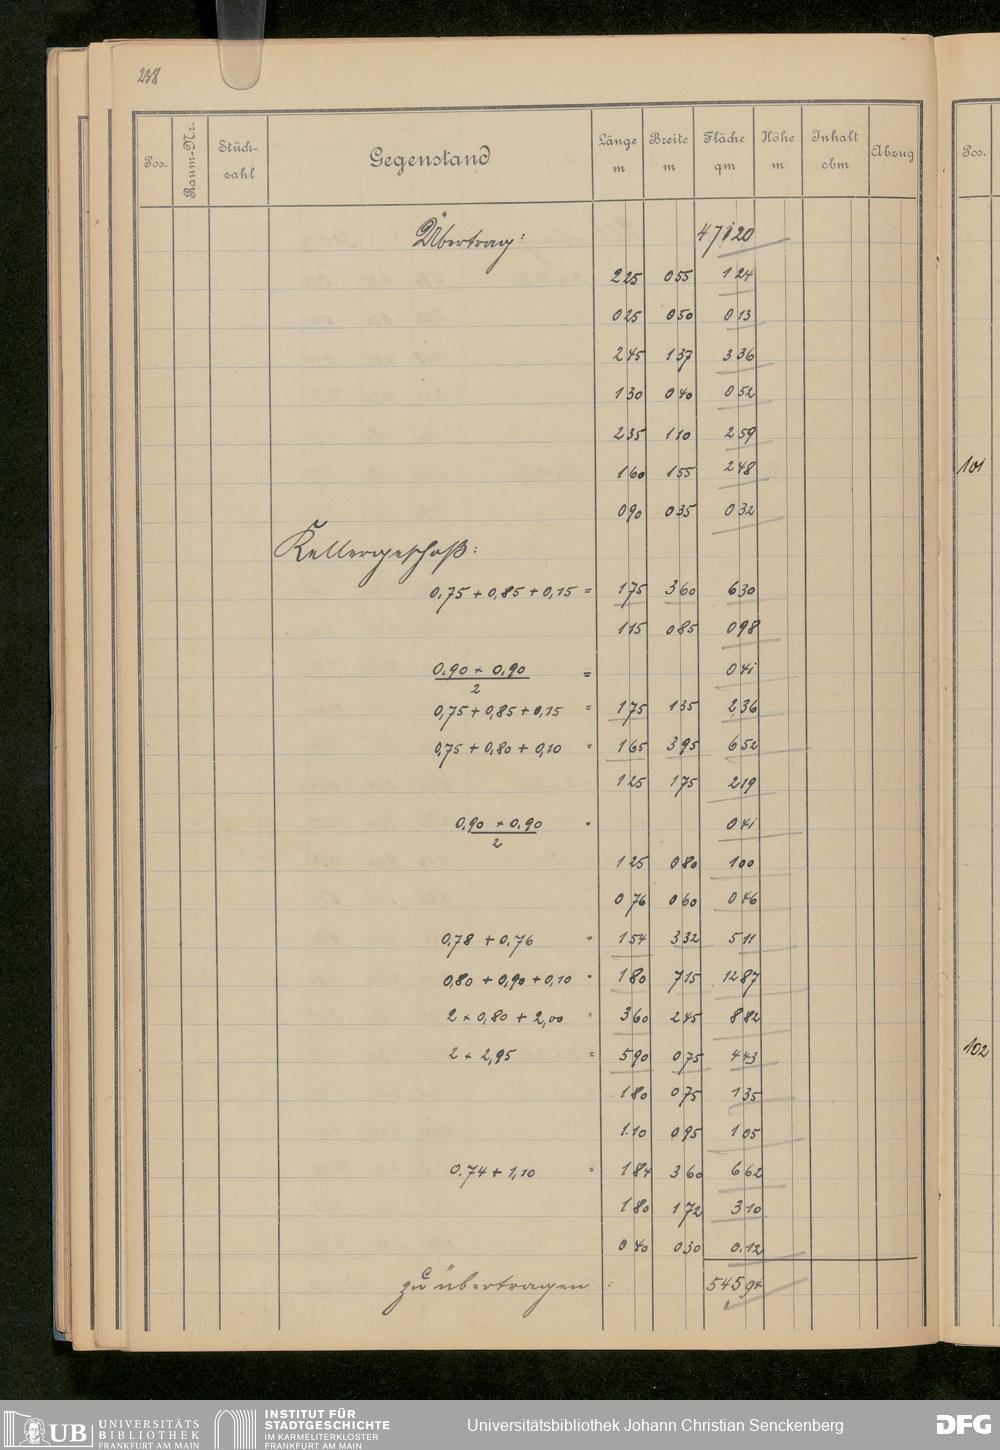 238
Pos. Raum-Nr. Stückzahl Gegenstand Länge m Breite m Fläche qm Höhe m Inhalt cbm Abzug Pos.
Übertrag: 471 20
2 25 0 55 1 24
0 25 0 50 0 13
2 45 1 37 3 36
1 30 0 40 0 52
2 35 1 10 2 59
1 60 1 55 2 48
101
0 90 0 35 0 32
Kellergeschoß:
0,75 + 0,85 + 0,15 = 1 75 3 60 6 30
1 15 0 85 0 98
0.90 × 0.90 / 2 = 0 41
0,75 + 0,85 + 0,15 = 1 75 1 35 2 36
0,75 + 0,80 + 0,10 = 1 65 3 95 6 52
1 25 1 75 2 19
0,90 × 0.90 / 2 = 0 41
1 25 0 80 1 00
0 76 0 60 0 46
0,78 + 0.76 = 1 54 3 32 5 11
0,80 + 0,90 + 0,10 = 1 80 7 15 12 87
2 × 0,80 + 2,00 = 3 60 2 45 8 82
2 × 2,95 = 5 90 0 75 4 43
102
1 80 0 75 1 35
1.10 0 95 1 05
0.74 + 1,10 = 1 84 3 60 6 62
1 80 1 72 3 10
0 40 0 30 0.12
zu übertragen : 545 94
UB UNIVERSITÄTS
BIBLIOTHEK
FRANKFURT AM MAIN
INSTITUT FÜR
STADTGESCHICHTE
IM KARMELITERKLOSTER
FRANKFURT AM MAIN
Universitätsbibliothek Johann Christian Senckenberg
DFG